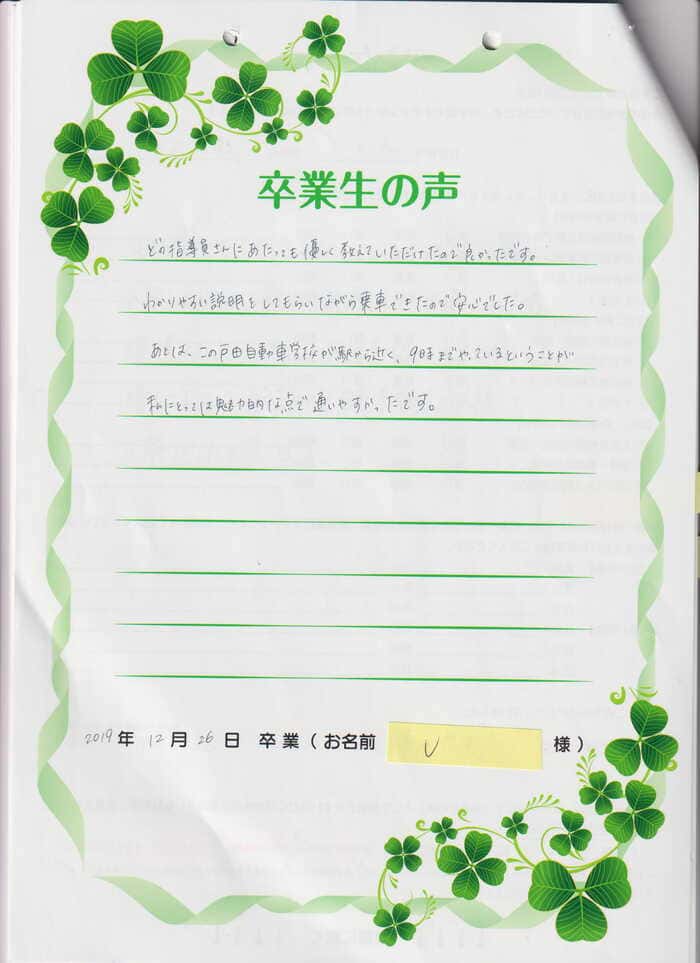 卒業生の声
どの指導員さんにあたっても優しく教えていただけたので良かったです。
わかりやすい説明をしてもらいながら乗車できたので安心でした。
あとは、この戸田自動車学校が駅から近く、9時までやっているということが
私にとっては魅力的な点で通いやすかったです。
2019年 12月 26日 卒業(お名前 U 様)